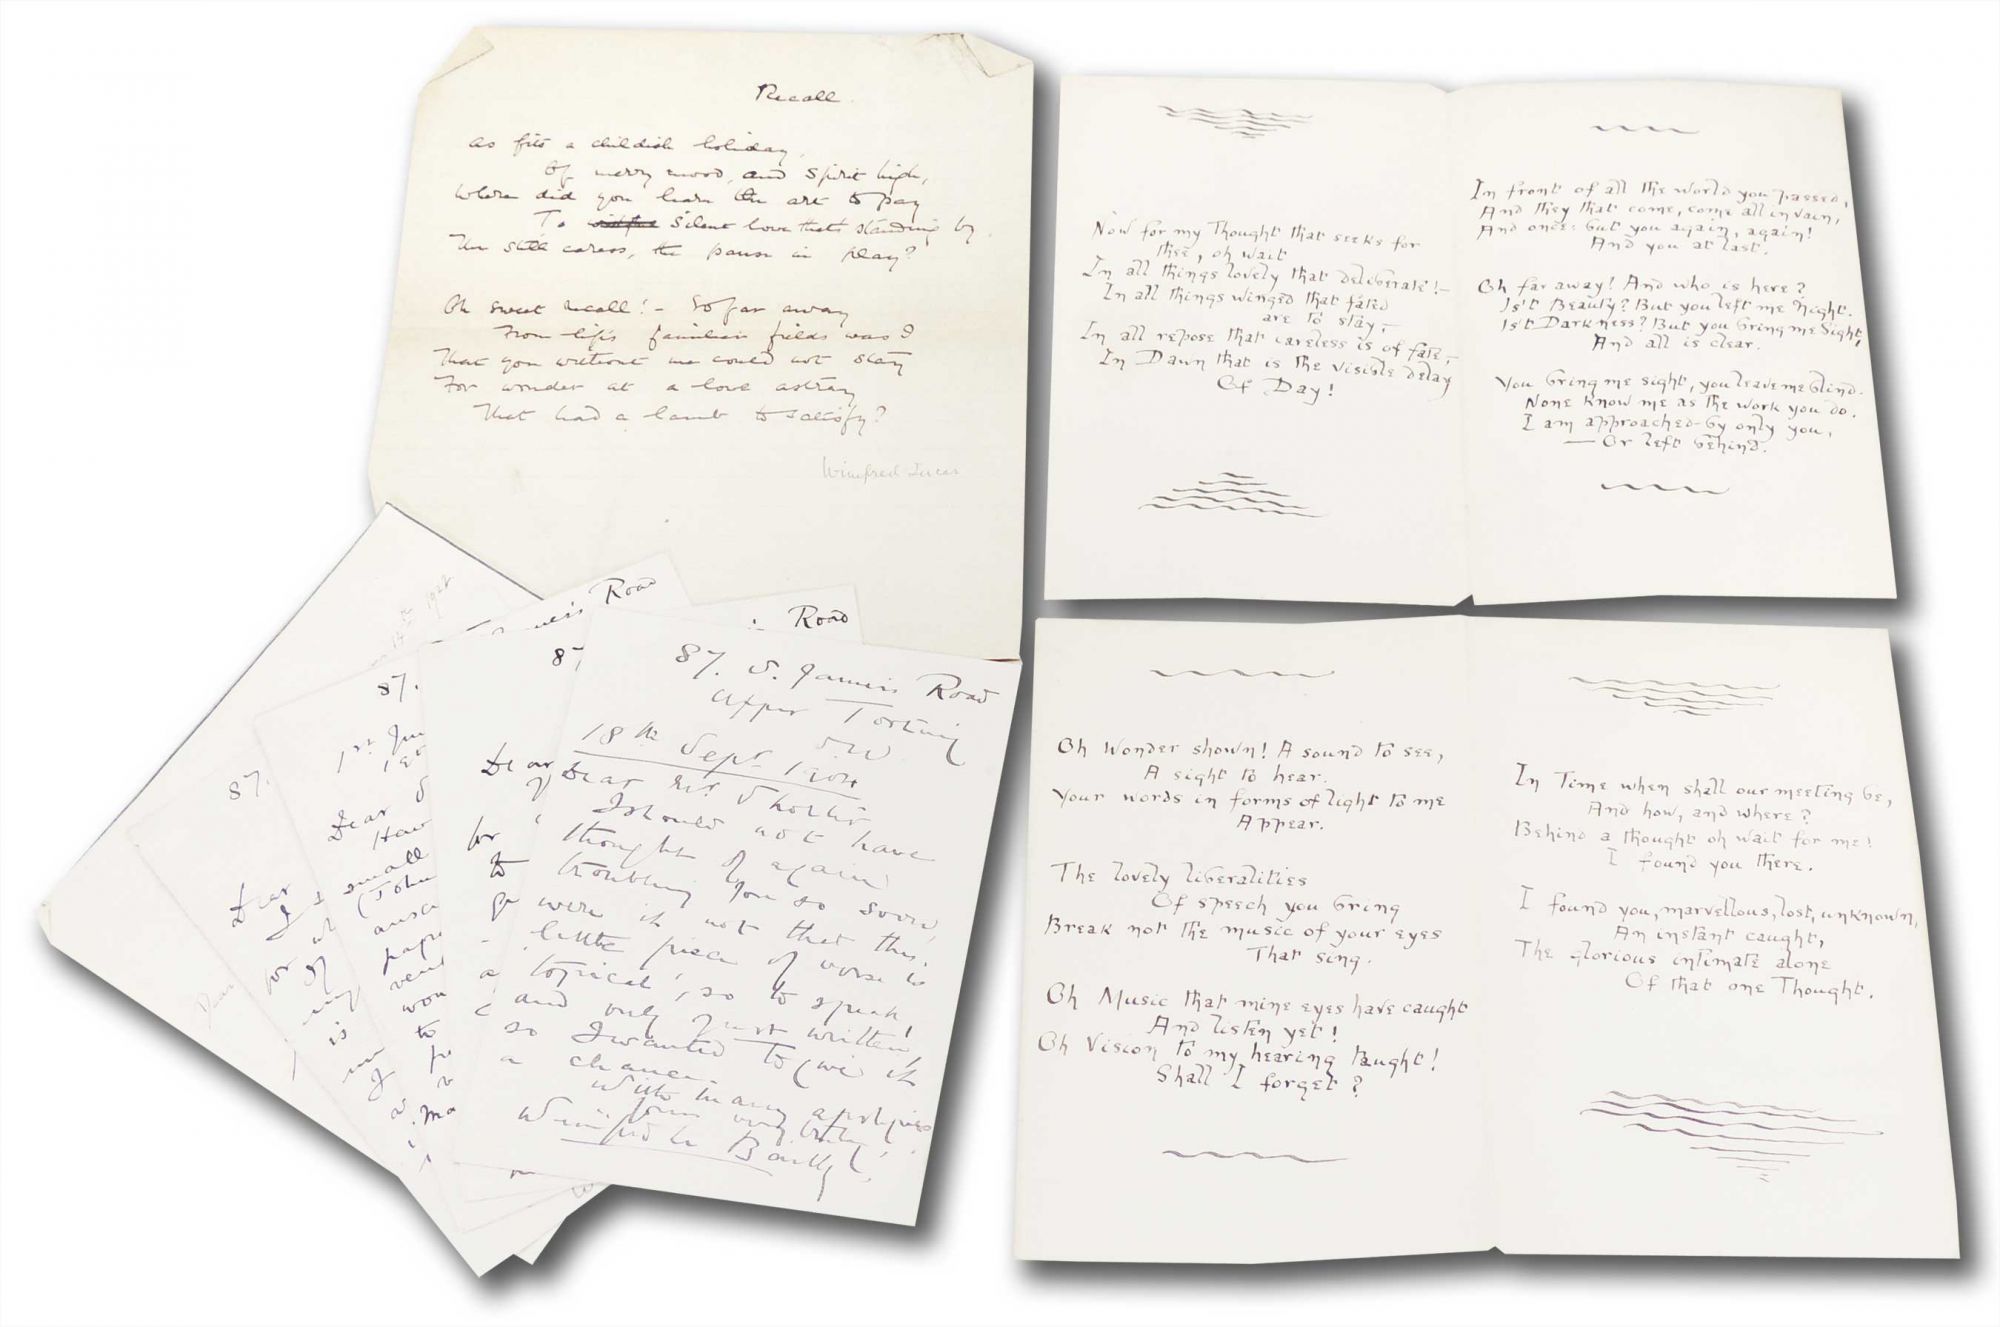 Recall.
As fits a childish holiday,
Of merry mood, and spirit high,
Where did you learn the art to pay
To silent love that's standing by.
The still caress, the pause in play?
Oh sweet recall! - So far away
From life's familiar fields was I
That you without me could not stay
For wonder at a love astray
That had a lamb to satisfy?
Winifred Lucas
Now for my Thought that seeks for
thee, oh wait
In all things lovely that deliberate! -
In all things winged that fated
are to stay, -
In all repose that careless is of fate, -
In Dawn that is the visible delay
Of Day!
In front of all the world you passed,
And they that come, come all in vain,
And once: but you again, again!
And you at last.
Oh far away! And who is here?
Is't Beauty? But you left me Night.
Is't Darkness? But you bring me Sight,
And all is clear.
You bring me sight, you leave me blind.
None know me as the work you do.
I am approached by only you,
— Or left behind.
Oh Wonder shown! A sound to see,
A sight to hear.
Your words in forms of light to me
Appear.
The lovely liberalities
Of speech you bring
Break not the music of your eyes
That sing.
Oh Music that mine eyes have caught
And listen yet!
Oh Vision to my hearing taught!
Shall I forget?
In Time when shall our meeting be,
And how, and where?
Behind a thought oh wait for me!
I found you there.
I found you, marvellous, lost, unknown,
An instant caught,
The glorious intimate alone
Of that one Thought.
87. S. James's Road
Upper Tooting
S.W.
18th Sept. 1904
Dear Mr. Shorter
I should not have
thought of again
troubling you so soon,
were it not that this
little piece of verse is
'topical', so to speak!
and only just written,
so I wanted to give it
a chance.
With many apologies
Yours very truly,
Winifred
Road
87.
Dear
for
to
Road
87.
1st
Dear
Hav
small
(John
to
87.
Dear
for
is
Dear
1922